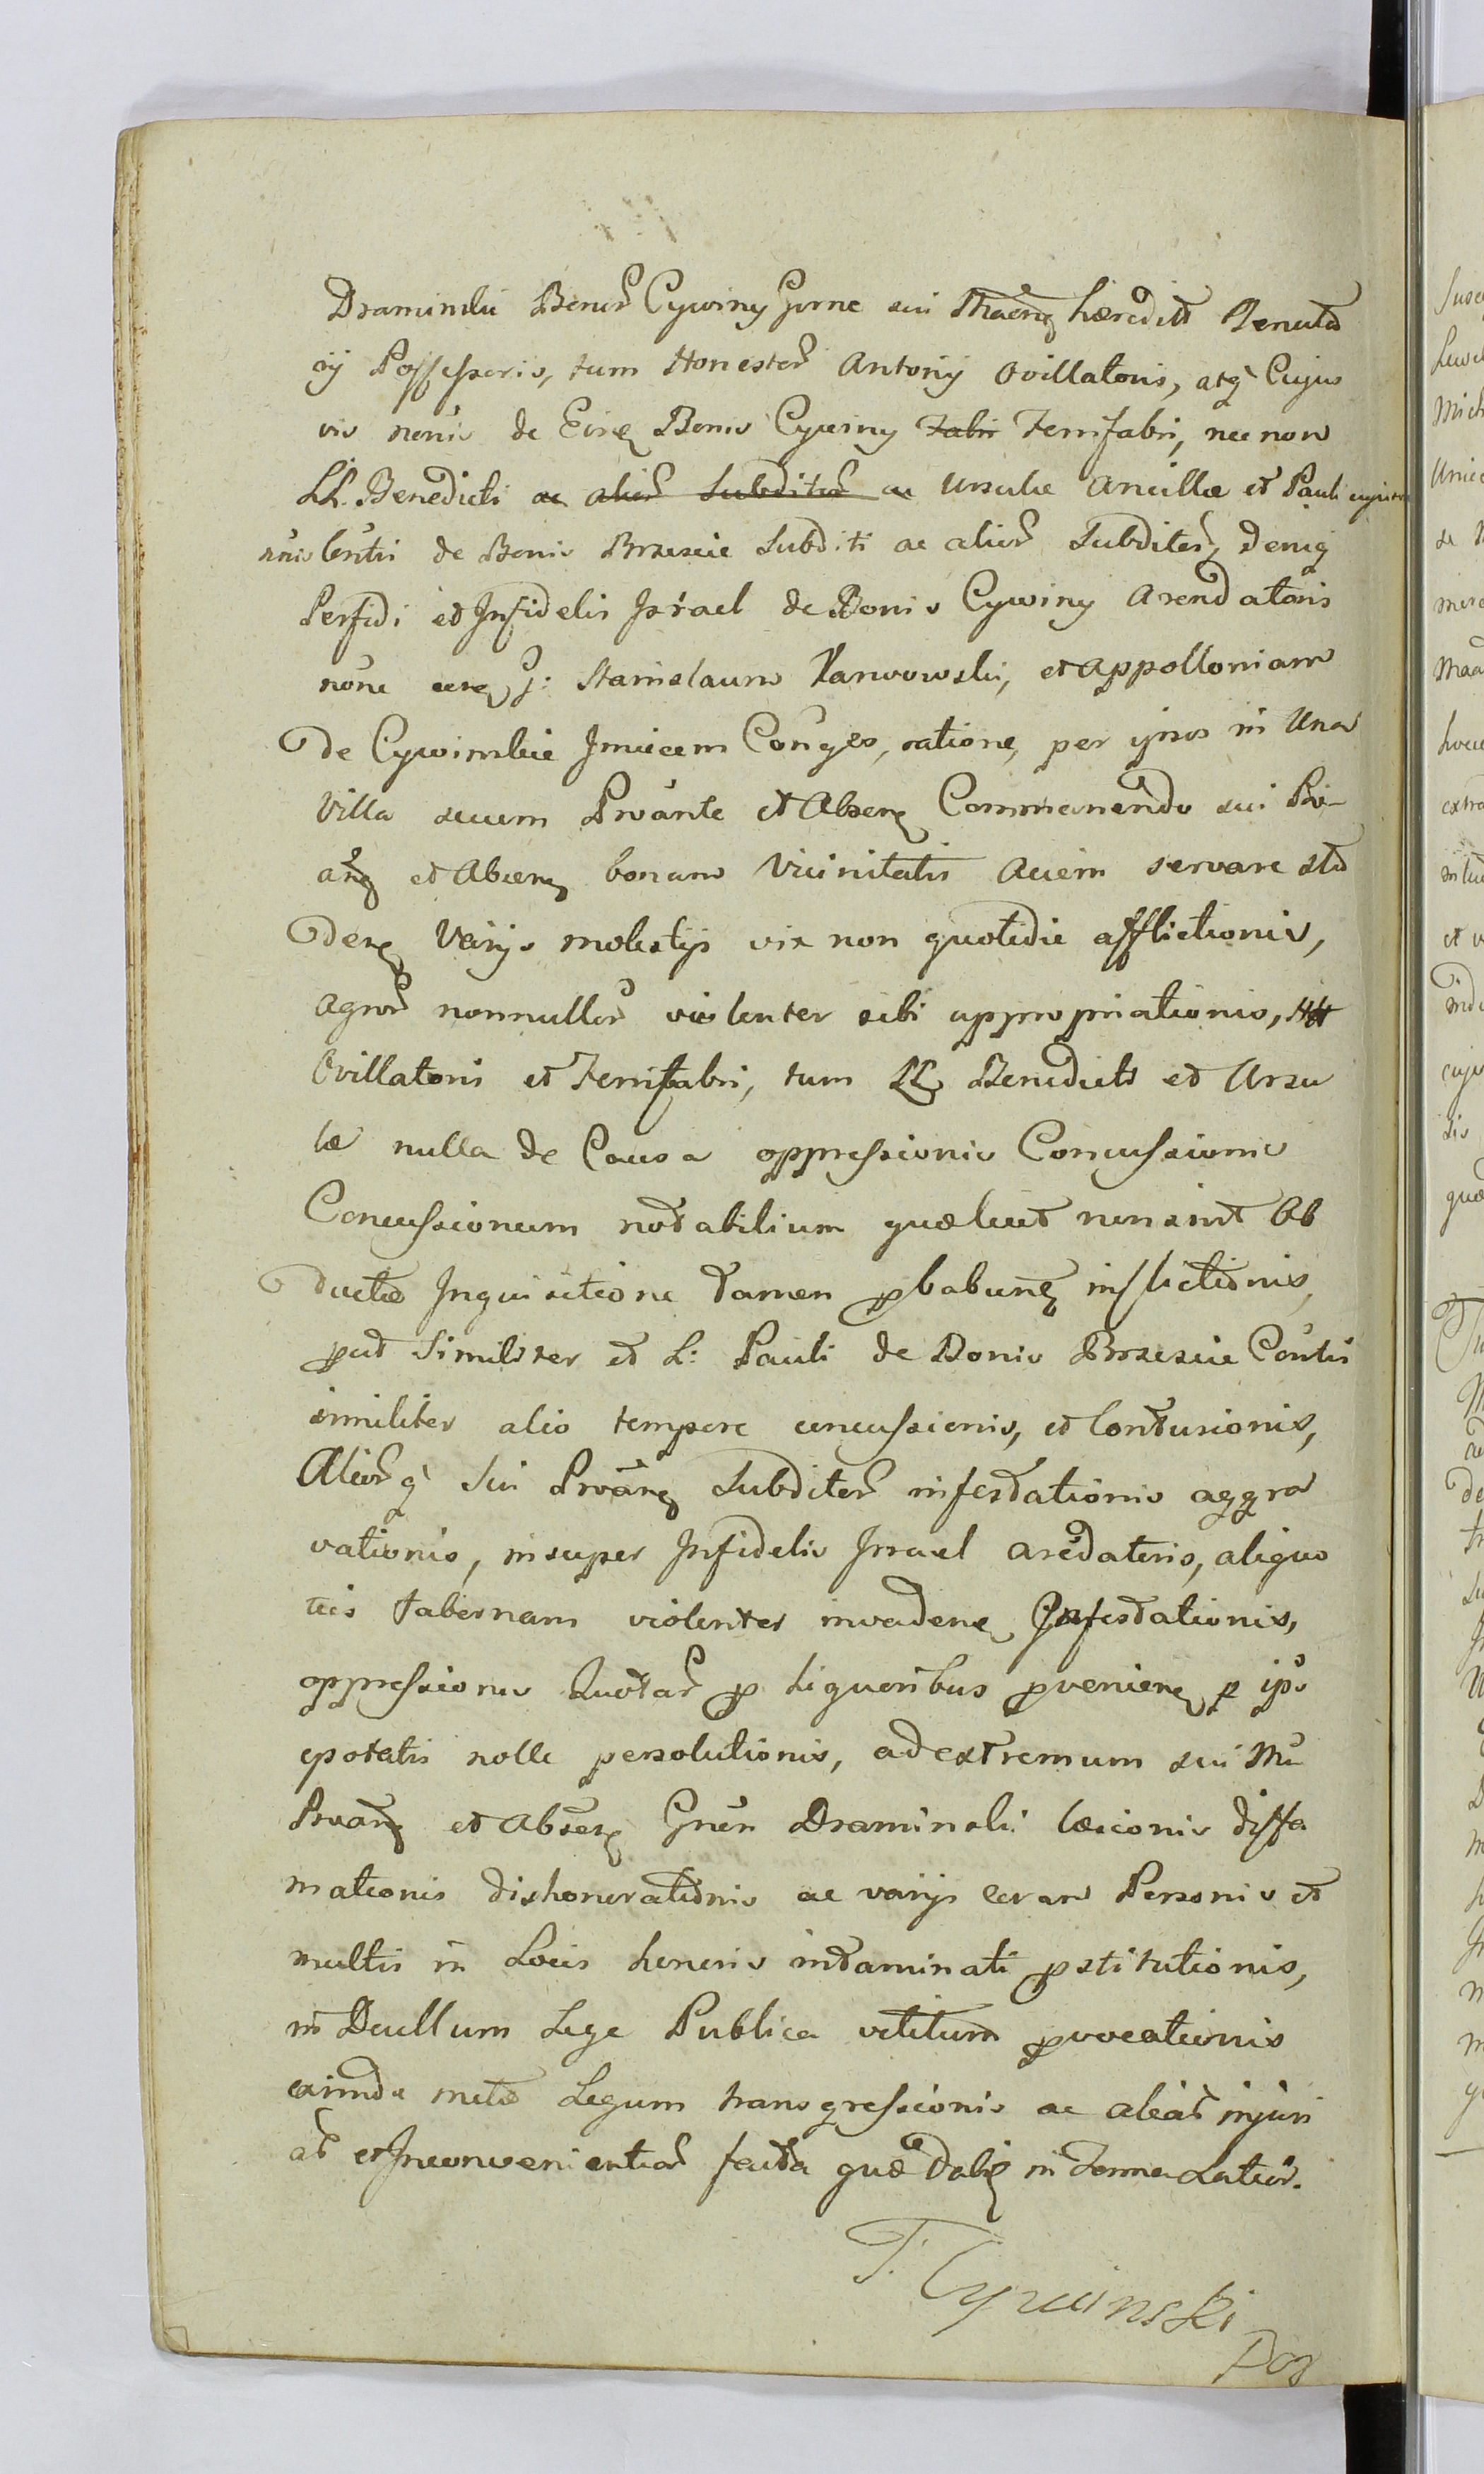 Draminski Bonor Cywiny Gorne sui Maeng hæredit Tenuta
rij Possessoris, tum Honestor Antonij Ovillatoris, atq Cujus
vis nonis de Eisq Bonis Cywiny Fabri Ferrifabri, nec non
LL. Benedicti ac alior Subditor ac Ursulæ Ancillæ et Pauli cujusvis
de Bonis Brzescie Subditi ac alior Subditor, deniq
Perfidi et Infidelis Israel de Bonis Cywiny Arendatoris
none G: Stanislaum Karwowski, et Appolloniam
de Cywinskie Invicem Conges, ratione, per ipsos in Una
Villa secum Proante et Absenq Commanendo sui Pro-
anq et Absenq bonam Vicinitatis Aciem servare stu
denq Varijs molestijs vix non quotidie afflictionis,
Agror nonnullor violenter sibi appropriationis,
Ovillatoris et Ferrifabri, tum LL Benedicti et Ursu
læ nulla de Causa oppressionis Concussionis
Concussionum notabilium quæ licet non sint Ob
ductæ Inquisitione tamen pbabunt inflictionis,
put Similiter et L: Pauli de Bonis Brzescie Contis
similiter alio tempore concussionis, et Contusionis,
Aliorq Sui Proanq Subditor infestationis aggra
vationis, insuper Infidelis Israel Aredatoris, aliquo
ties tabernam violenter invadenq Infestationis,
oppressionis Quotar p Liquoribus pvenienq p ips
epotatis nolle persolutionis, ad extremum sui Mu
Proanq et Absenq Gnen Draminski læsionis diffa
mationis dishonorationis ac varijs coram Personis et
multis in Locis honoris intaminati pstitutionis,
in Duellum Lege Publica vetitum pvocationis
eximde metæ Legum transgressionis ac aliar injuri
ar et Inconvenientiar facta quæ dabit in Termo Latior.
T. Cywinski